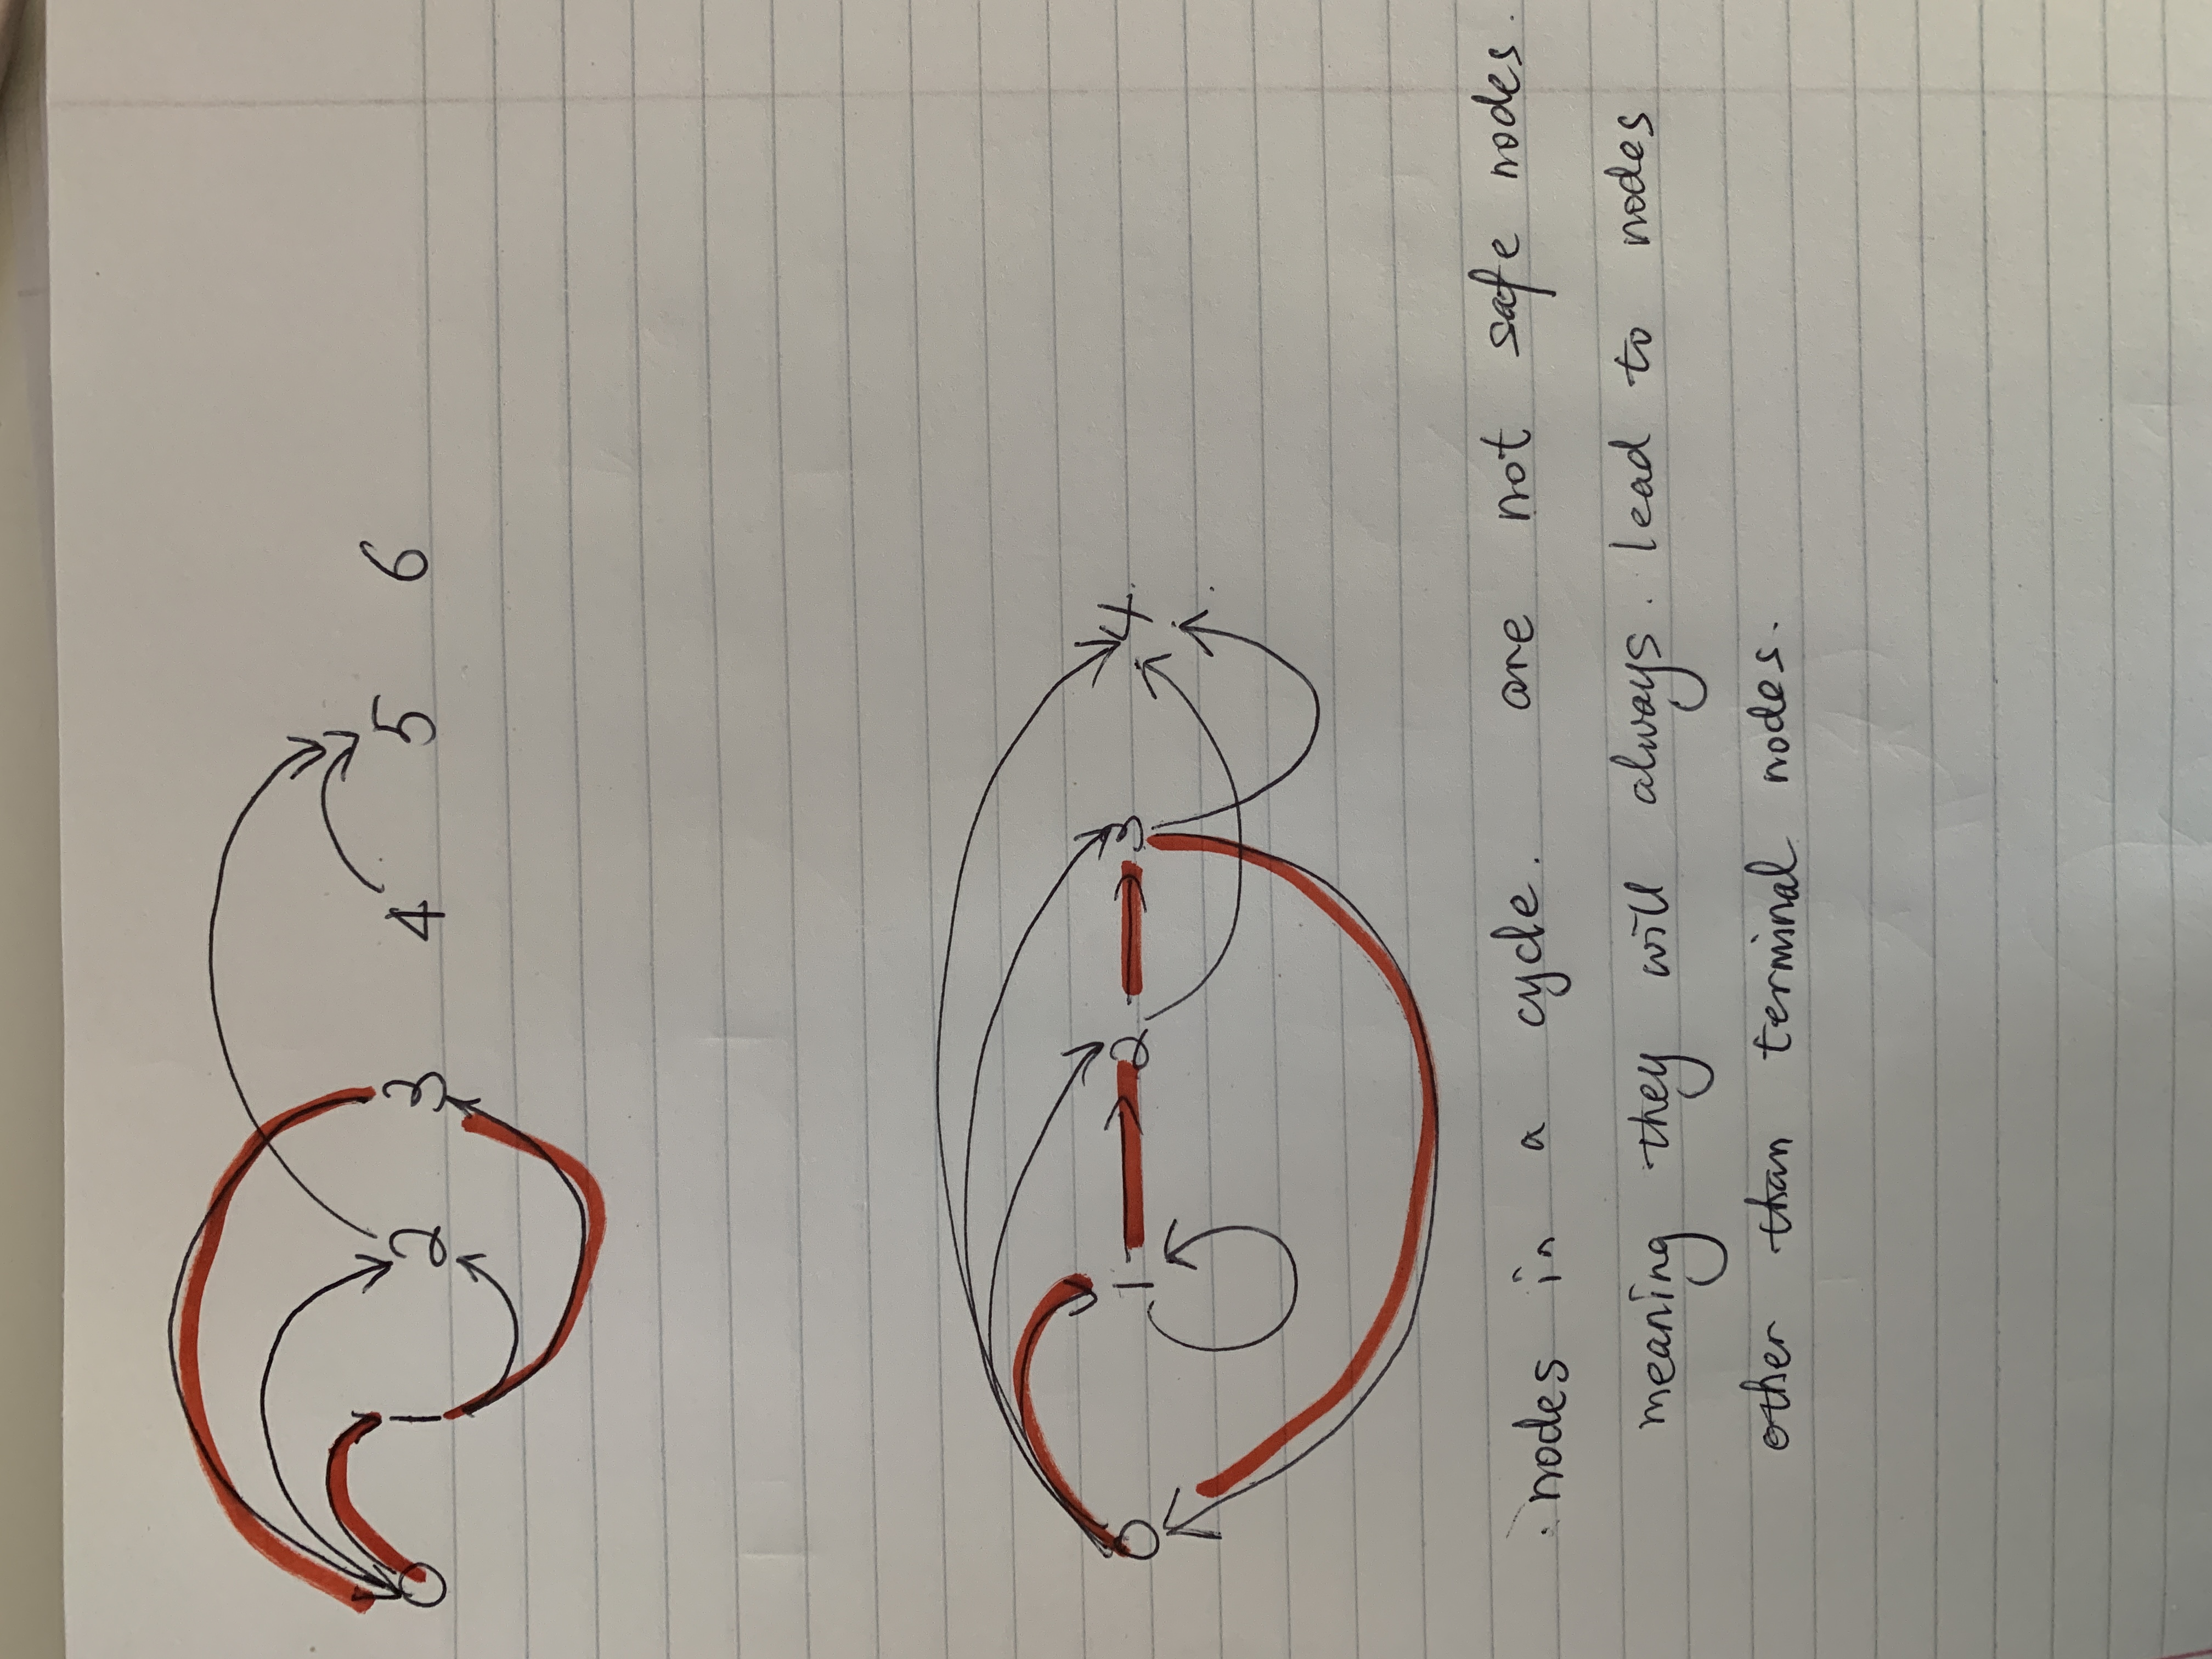 0 1 2 3 4 5 6
0 1 2 3 4.
nodes in a cycle. are not safe nodes.
meaning they will always. lead to nodes
other than terminal nodes.